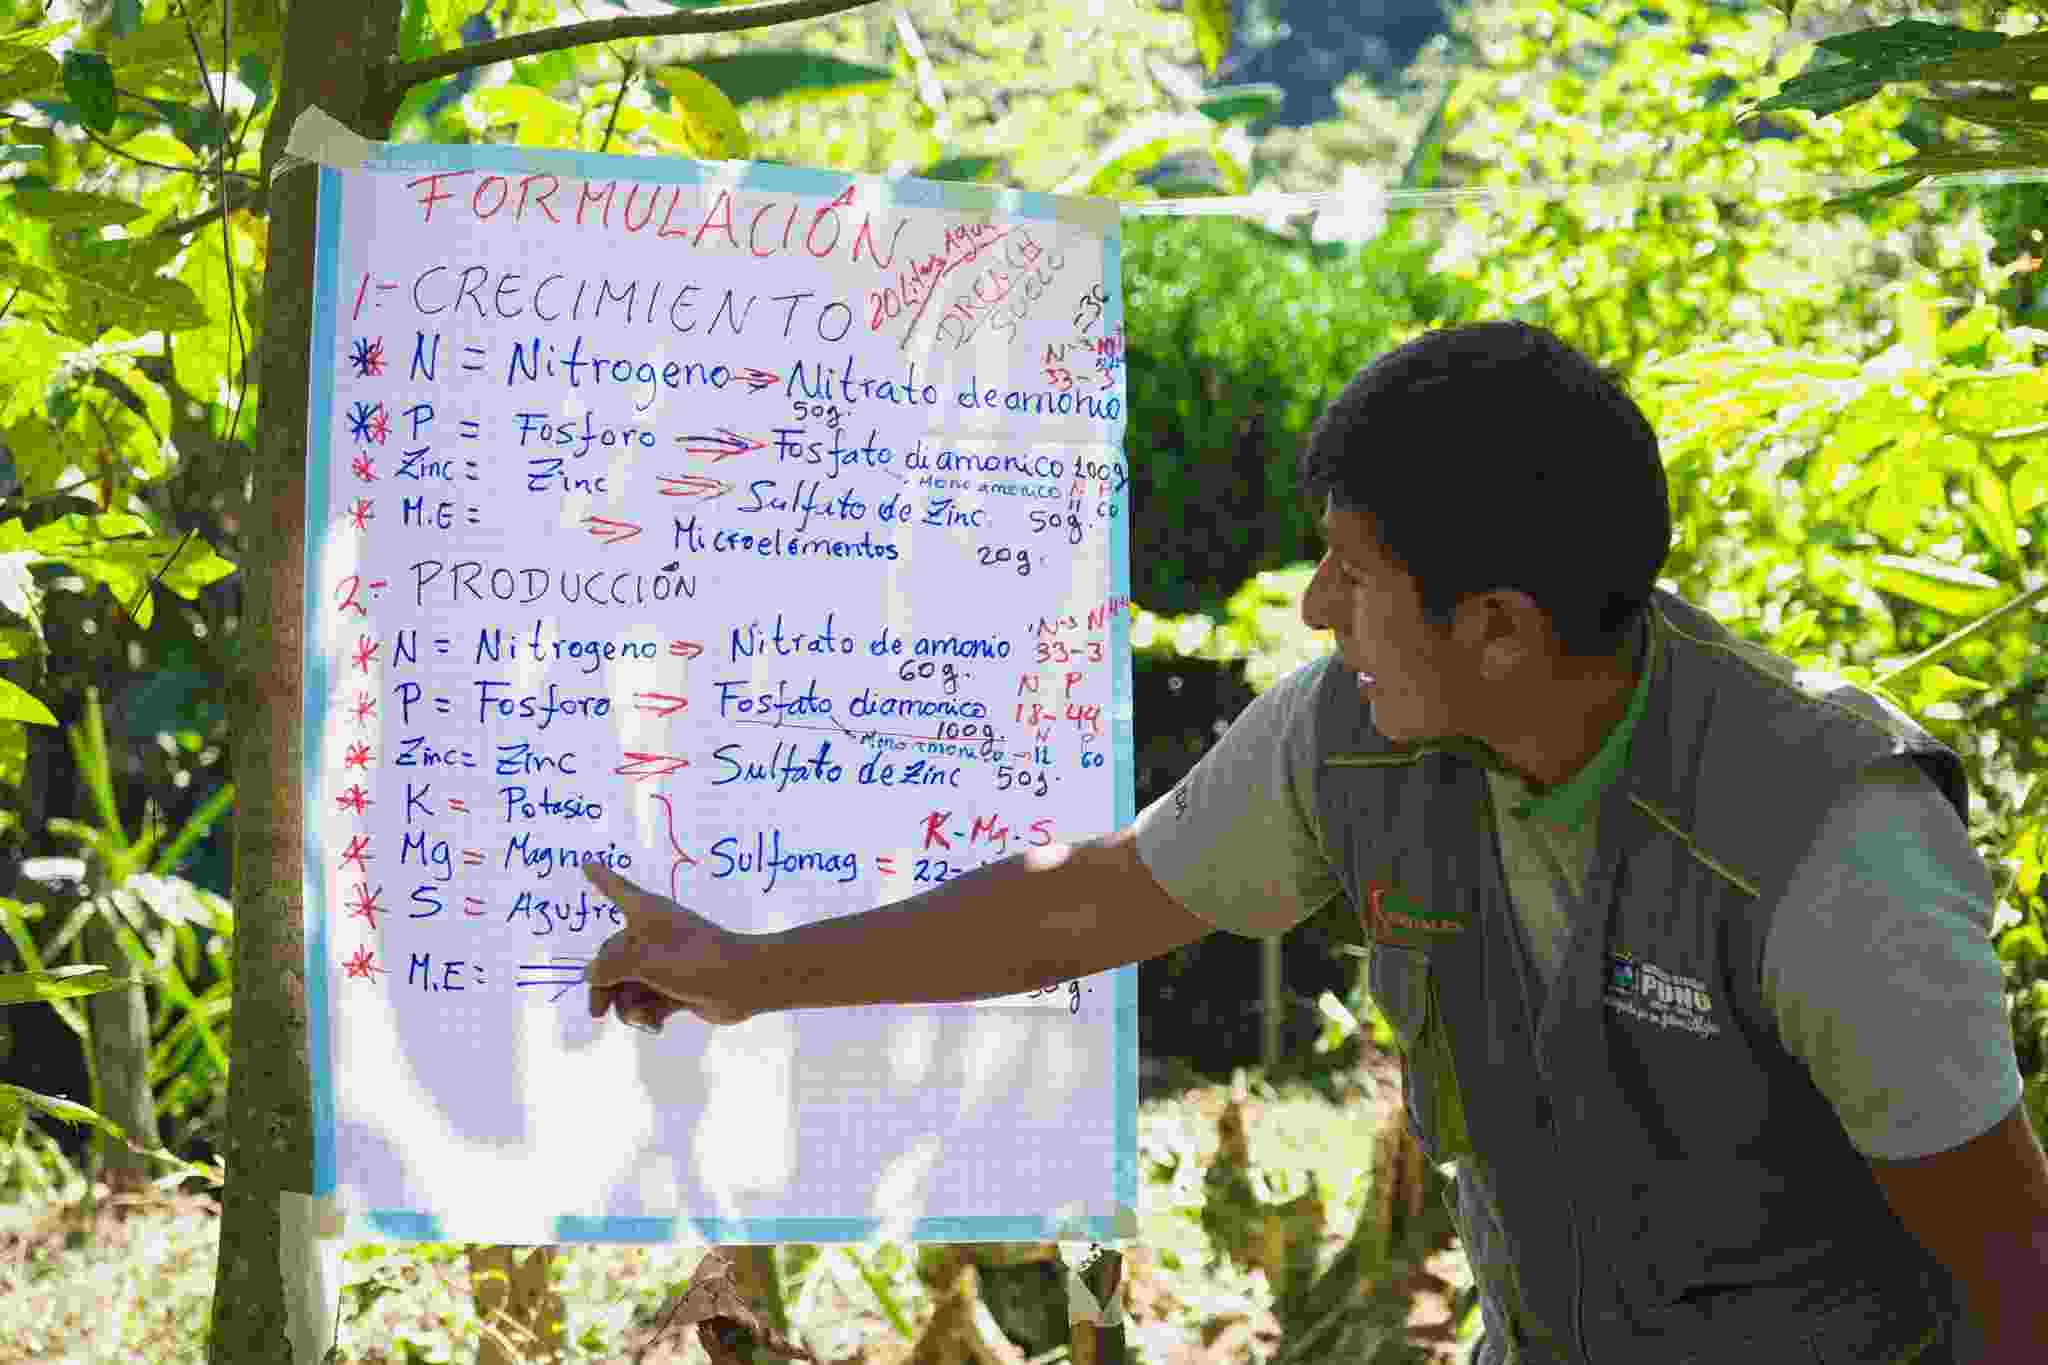 FORMULACIÓN
20 Litros Agua
DRENCH
SUELO
1- CRECIMIENTO
N = Nitrogeno Nitrato de amonio
33-3
50g.
P = Fosforo Fosfato diamonico 200g
Mono amonico N P
11 60
Zinc = Zinc Sulfato de Zinc. 50g.
M.E = Microelementos 20g.
2- PRODUCCIÓN
N = Nitrogeno Nitrato de amonio
33-3
60g.
P = Fosforo Fosfato diamonico
N P
18-44
100g.
Mono amonico -11 60
N P
Zinc = Zinc Sulfato de Zinc 50g.
K = Potasio
Mg = Magnesio Sulfomag =
K-Mg-S
22-
S = Azufre
M.E =
PUNO